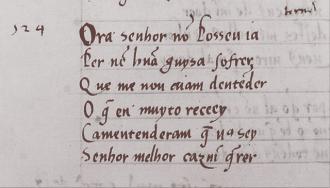 tornel
124
Ora senhor nõ posseu ia
Per nẽ hũa guysa sofrer
Que me nou aiam dentẽder
O q̃ eu muyto receey
Camentenderam q̃ uꝯ sey
Senhor melhor cami q̃rer